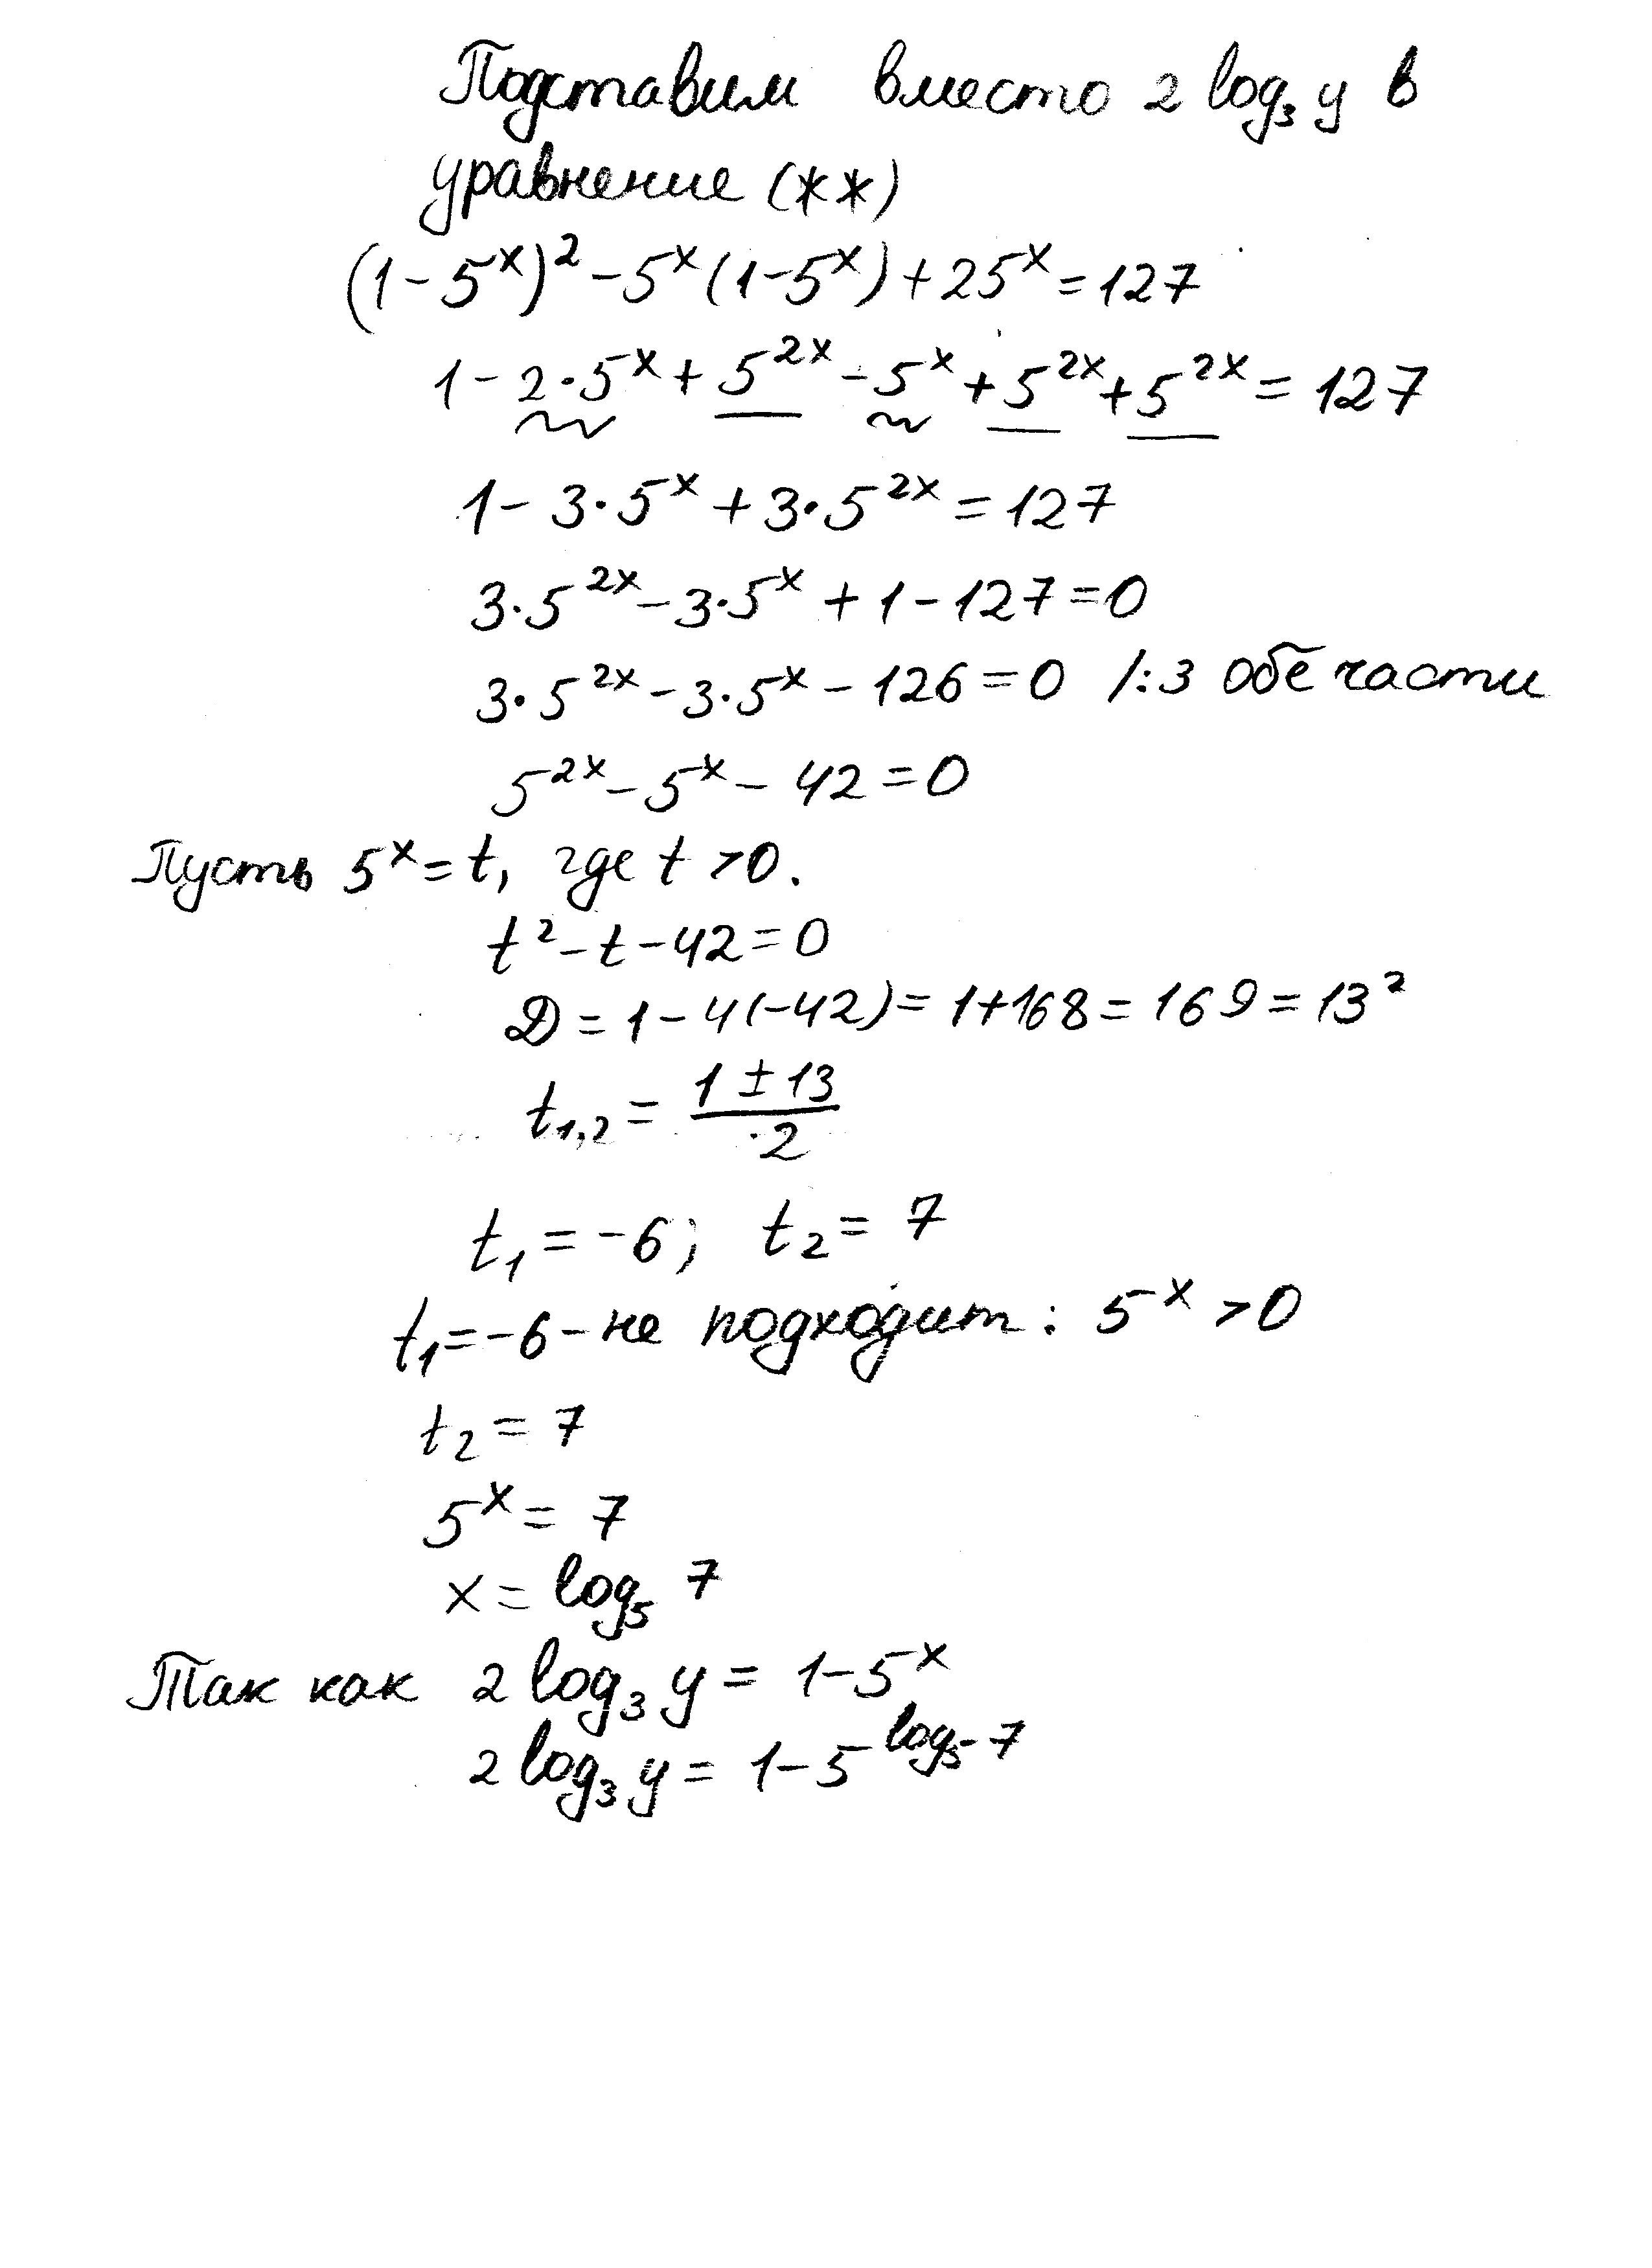 Подставим вместо 2 log₃ y в
уравнение (**)
(1 - 5ˣ)² - 5ˣ(1 - 5ˣ) + 25ˣ = 127
1 - 2·5ˣ + 5²ˣ - 5ˣ + 5²ˣ + 5²ˣ = 127
1 - 3·5ˣ + 3·5²ˣ = 127
3·5²ˣ - 3·5ˣ + 1 - 127 = 0
3·5²ˣ - 3·5ˣ - 126 = 0 /:3 обе части
5²ˣ - 5ˣ - 42 = 0
Пусть 5ˣ = t, где t > 0.
t² - t - 42 = 0
D = 1 - 4(-42) = 1 + 168 = 169 = 13²
t₁,₂ = (1 ± 13)/2
t₁ = -6; t₂ = 7
t₁ = -6 - не подходит: 5ˣ > 0
t₂ = 7
5ˣ = 7
x = log₅ 7
Так как 2 log₃ y = 1 - 5ˣ
2 log₃ y = 1 - 5^(log₅ 7)